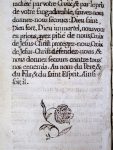 rachete par votre Croix & par le prix
de votre sang adorable, sauvez-nous
donnez-nous secours: Dieu saint
Dieu fort, Dieu immortel, nous vous
en prions, ayez pitié de nous. Croix
de Jesus-Christ protegez-nous, Croix
de Jesus-Christ defendez-nous &
nous donnez secours contre tous
nos ennemis. Au nom du Pere &
du Fils & du saint Esprit. Ainsi
soit il.